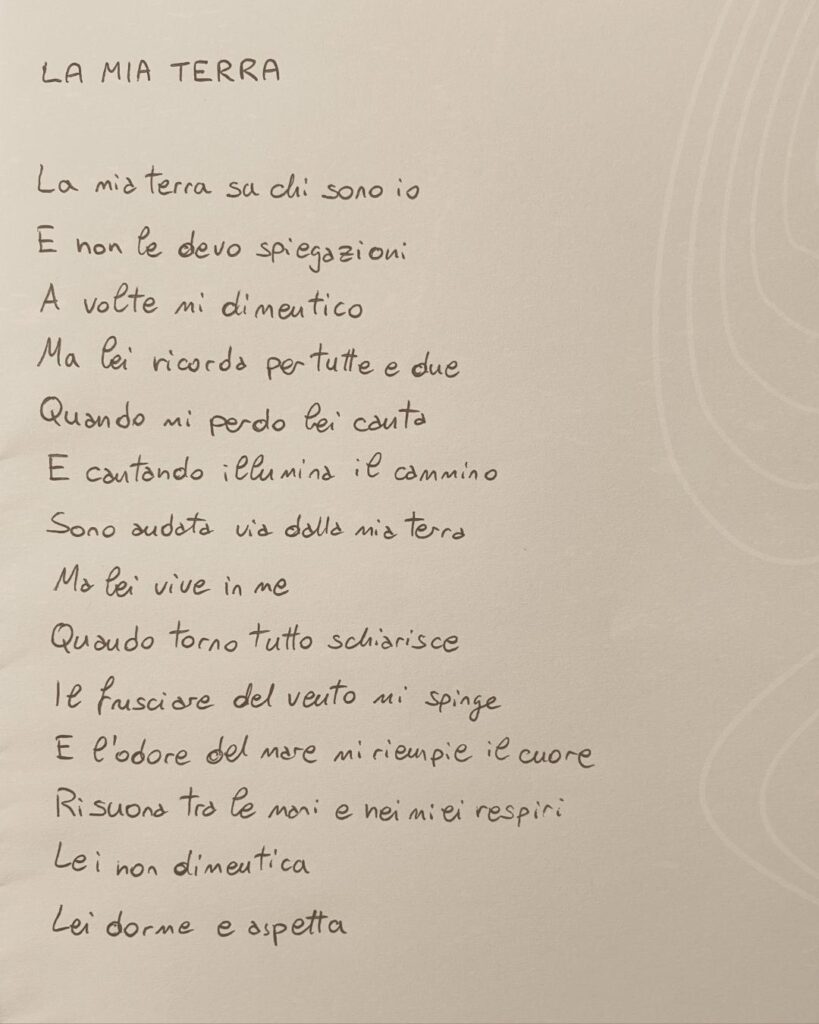 LA MIA TERRA
La mia terra sa chi sono io
E non le devo spiegazioni
A volte mi dimentico
Ma lei ricorda per tutte e due
Quando mi perdo lei canta
E cantando illumina il cammino
Sono andata via dalla mia terra
Ma lei vive in me
Quando torno tutto schiarisce
Il frusciare del vento mi spinge
E l'odore del mare mi riempie il cuore
Risuona tra le mani e nei miei respiri
Lei non dimentica
Lei dorme e aspetta